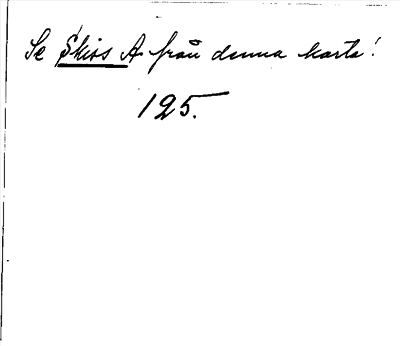 Se Skiss A från denna karta!
125.